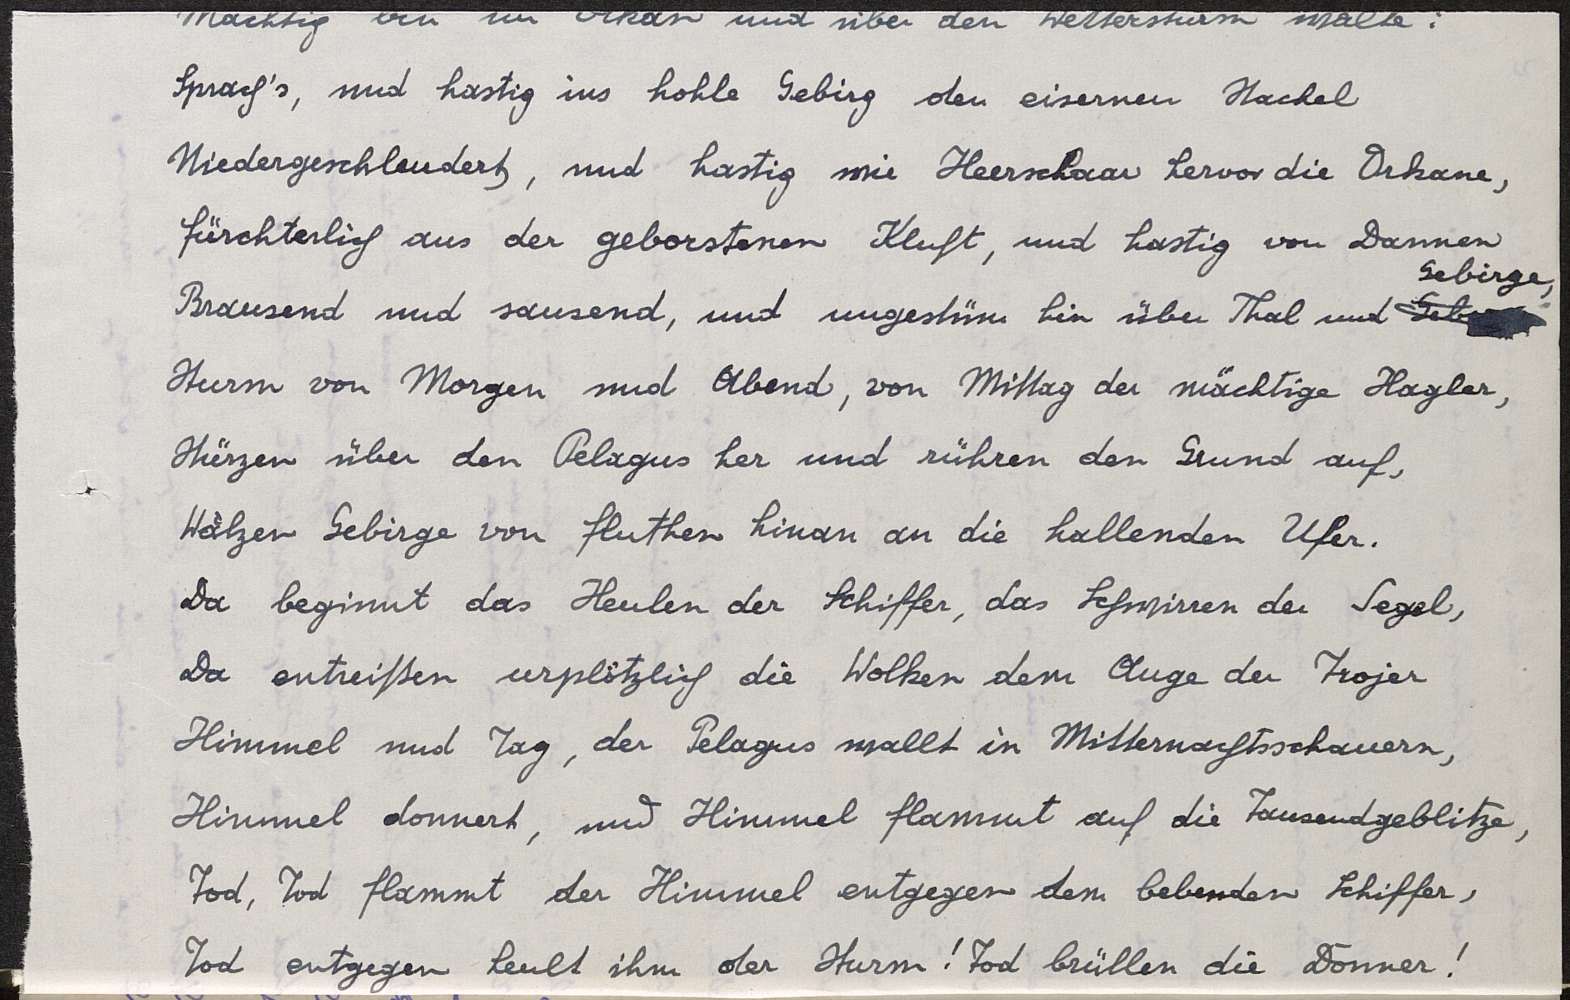 Mächtig bin im Orkan und über den Wettersturm walte:
Sprach's, und hastig ins hohle Gebirg den eisernen Stachel
Niedergeschleudert, und hastig wie Heerschaar hervor die Orkane,
fürchterlich aus der geborstenen Kluft, und hastig von Dannen
Gebirge,
Brausend und sausend, und ungestüm hin über Thal und
Sturm von Morgen und Abend, von Mittag der mächtige Hagler,
Stürzen über den Pelagus her und rühren den Grund auf,
Wälzen Gebirge von fluthen hinan an die hallenden Ufer.
Da beginnt das Heulen der Schiffer, das Schwirren der Segel,
Da entreißen urplötzlich die Wolken dem Auge der Trojer
Himmel und Tag, der Pelagus wallt in Mitternachtsschauern,
Himmel donnert, und Himmel flammt auf die Tausendgeblitze,
Tod, Tod flammt der Himmel entgegen dem bebenden Schiffer,
Tod entgegen heult ihm der Sturm! Tod brüllen die Donner!